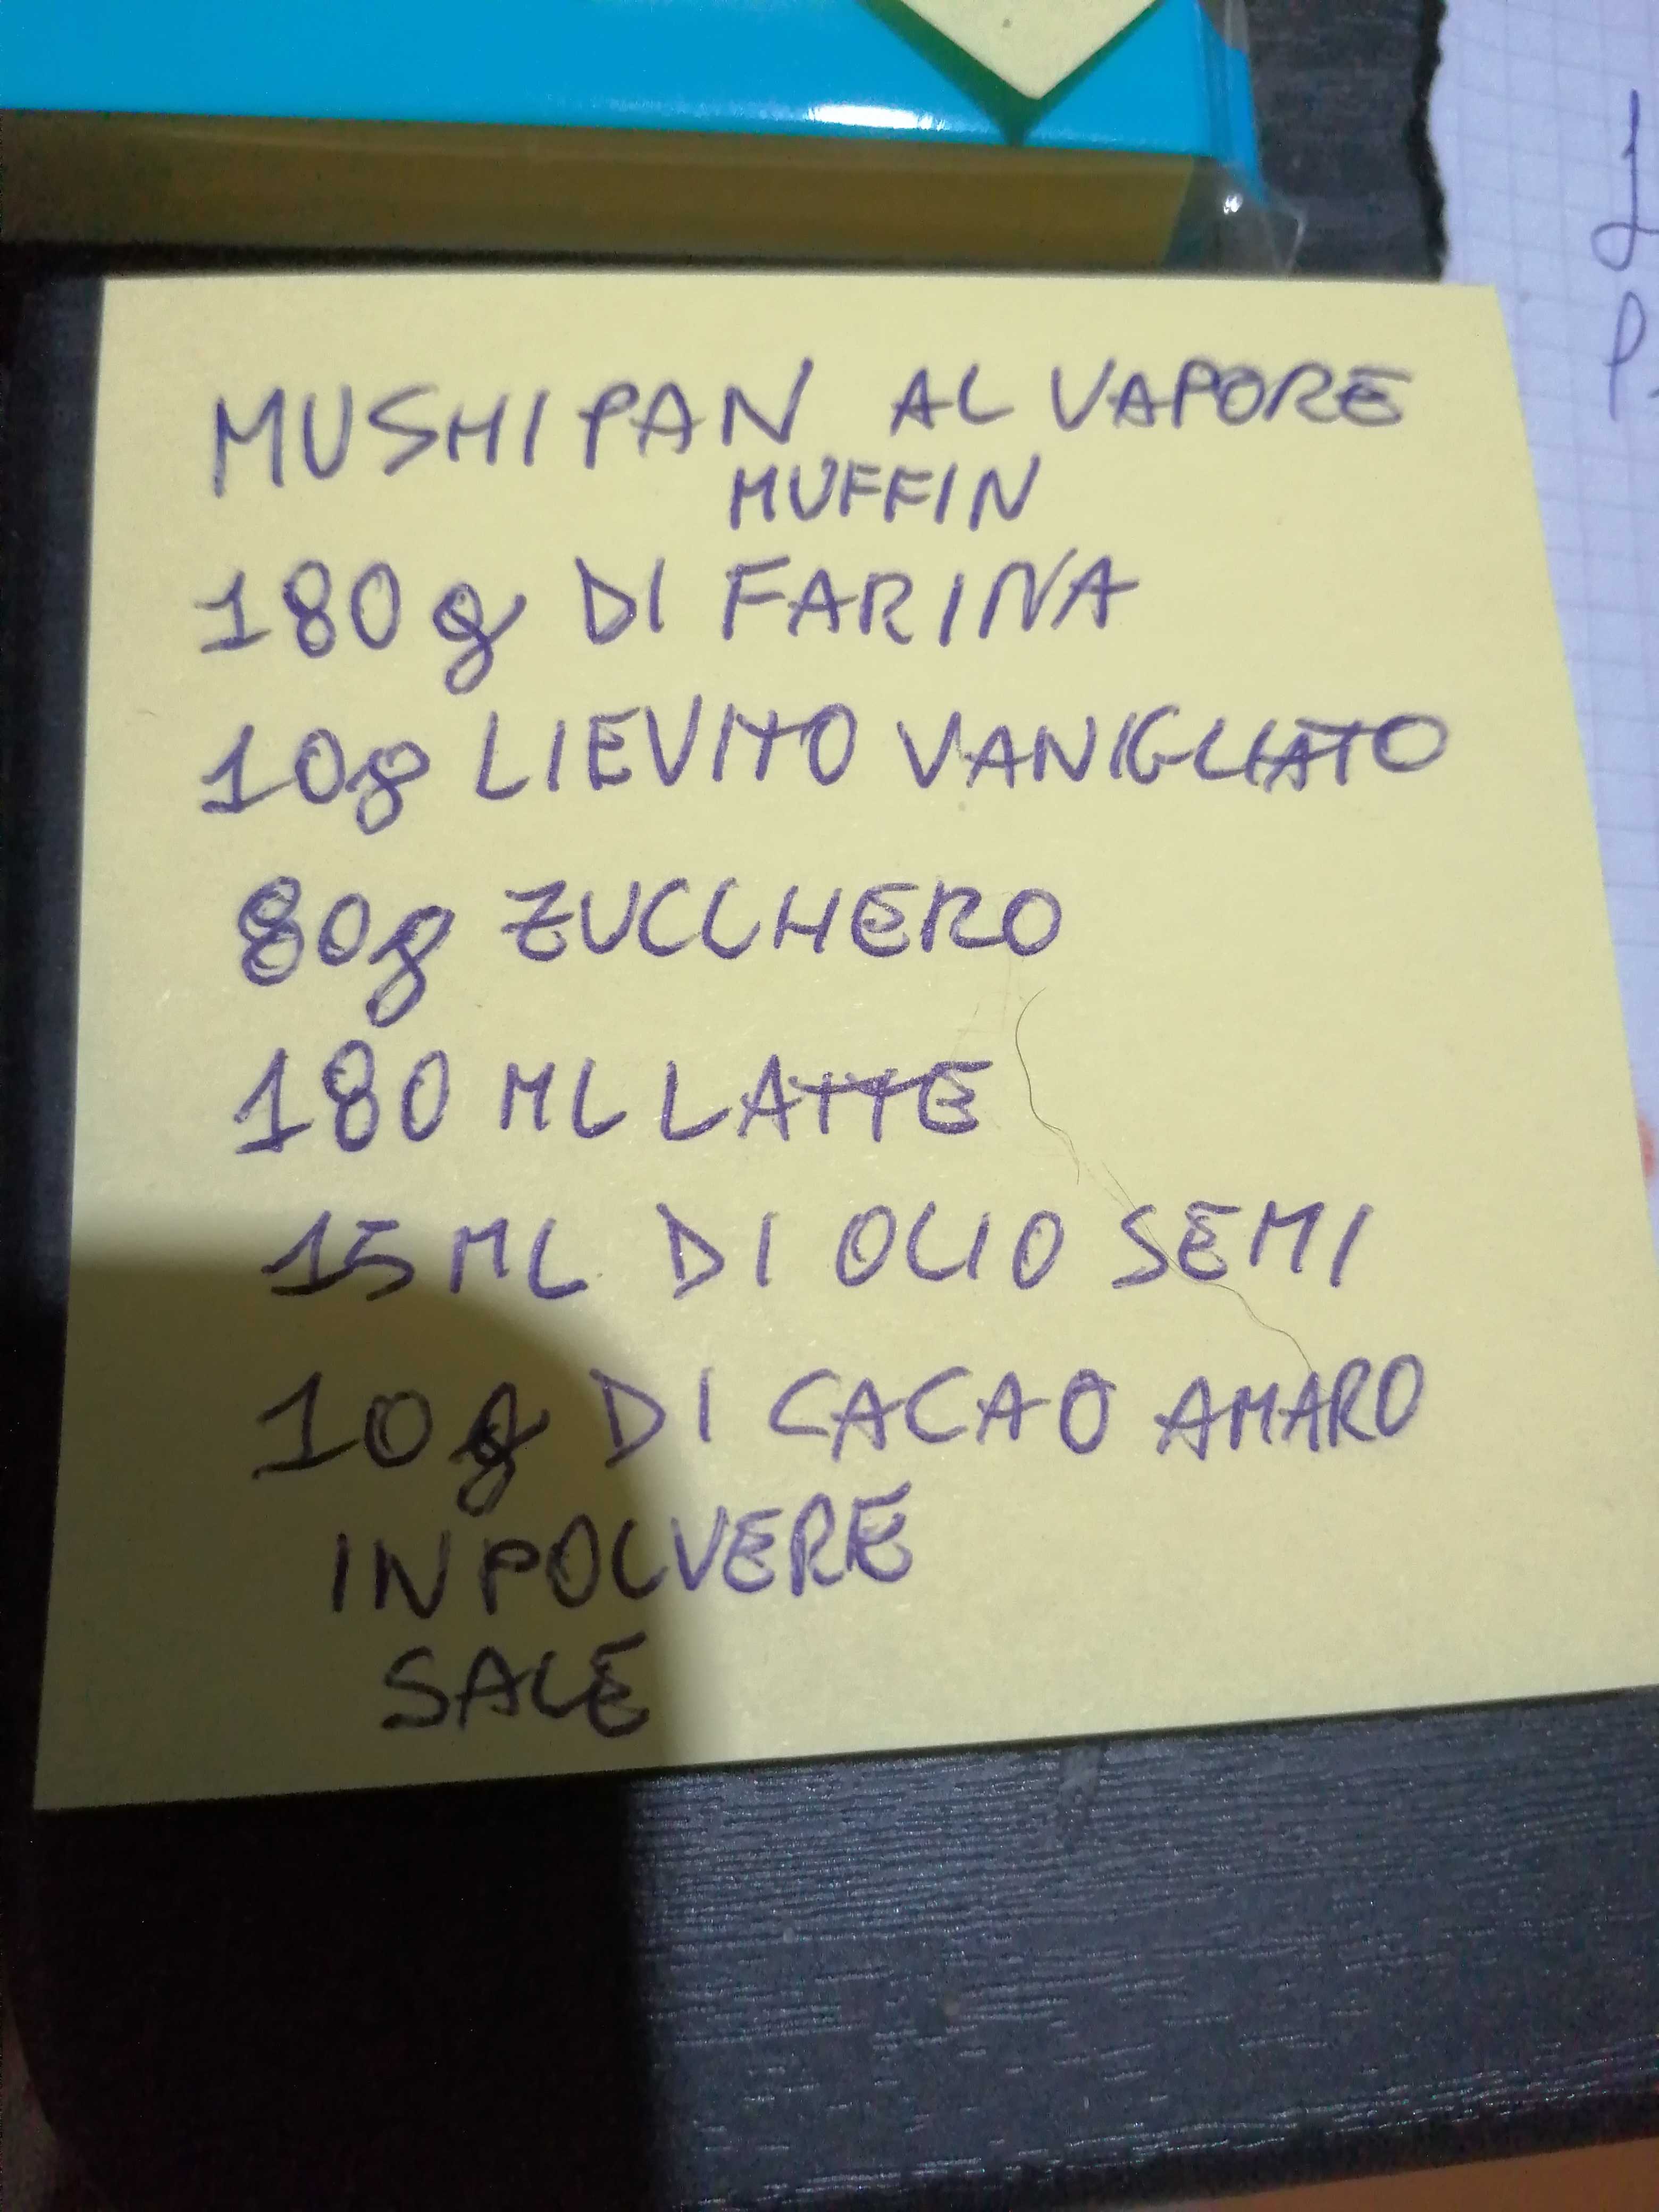 MUSHIPAN AL VAPORE
MUFFIN
180 g DI FARINA
10g LIEVITO VANIGLIATO
80g ZUCCHERO
180 ML LATTE
15 ML DI OLIO SEMI
10 g DI CACAO AMARO
IN POLVERE
SALE